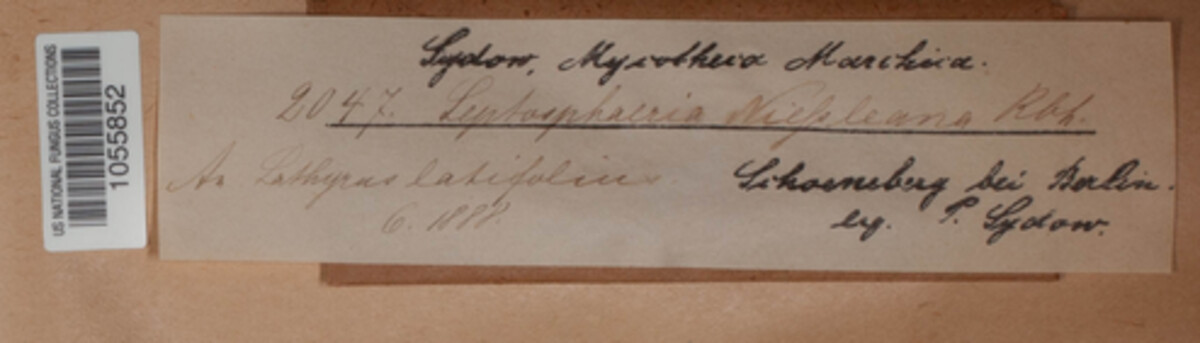 US NATIONAL FUNGUS COLLECTIONS
1055852
Sydow, Mycotheca Marchica.
2047. Leptosphaeria Nießleana Rbh.
An Lathyrus latifolius.
6. 1888
Schoeneberg bei Berlin.
leg. P. Sydow.